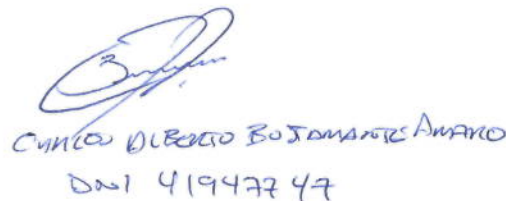 CARLOS ALBERTO BUSTAMANTE AMARO
DNI 41947747